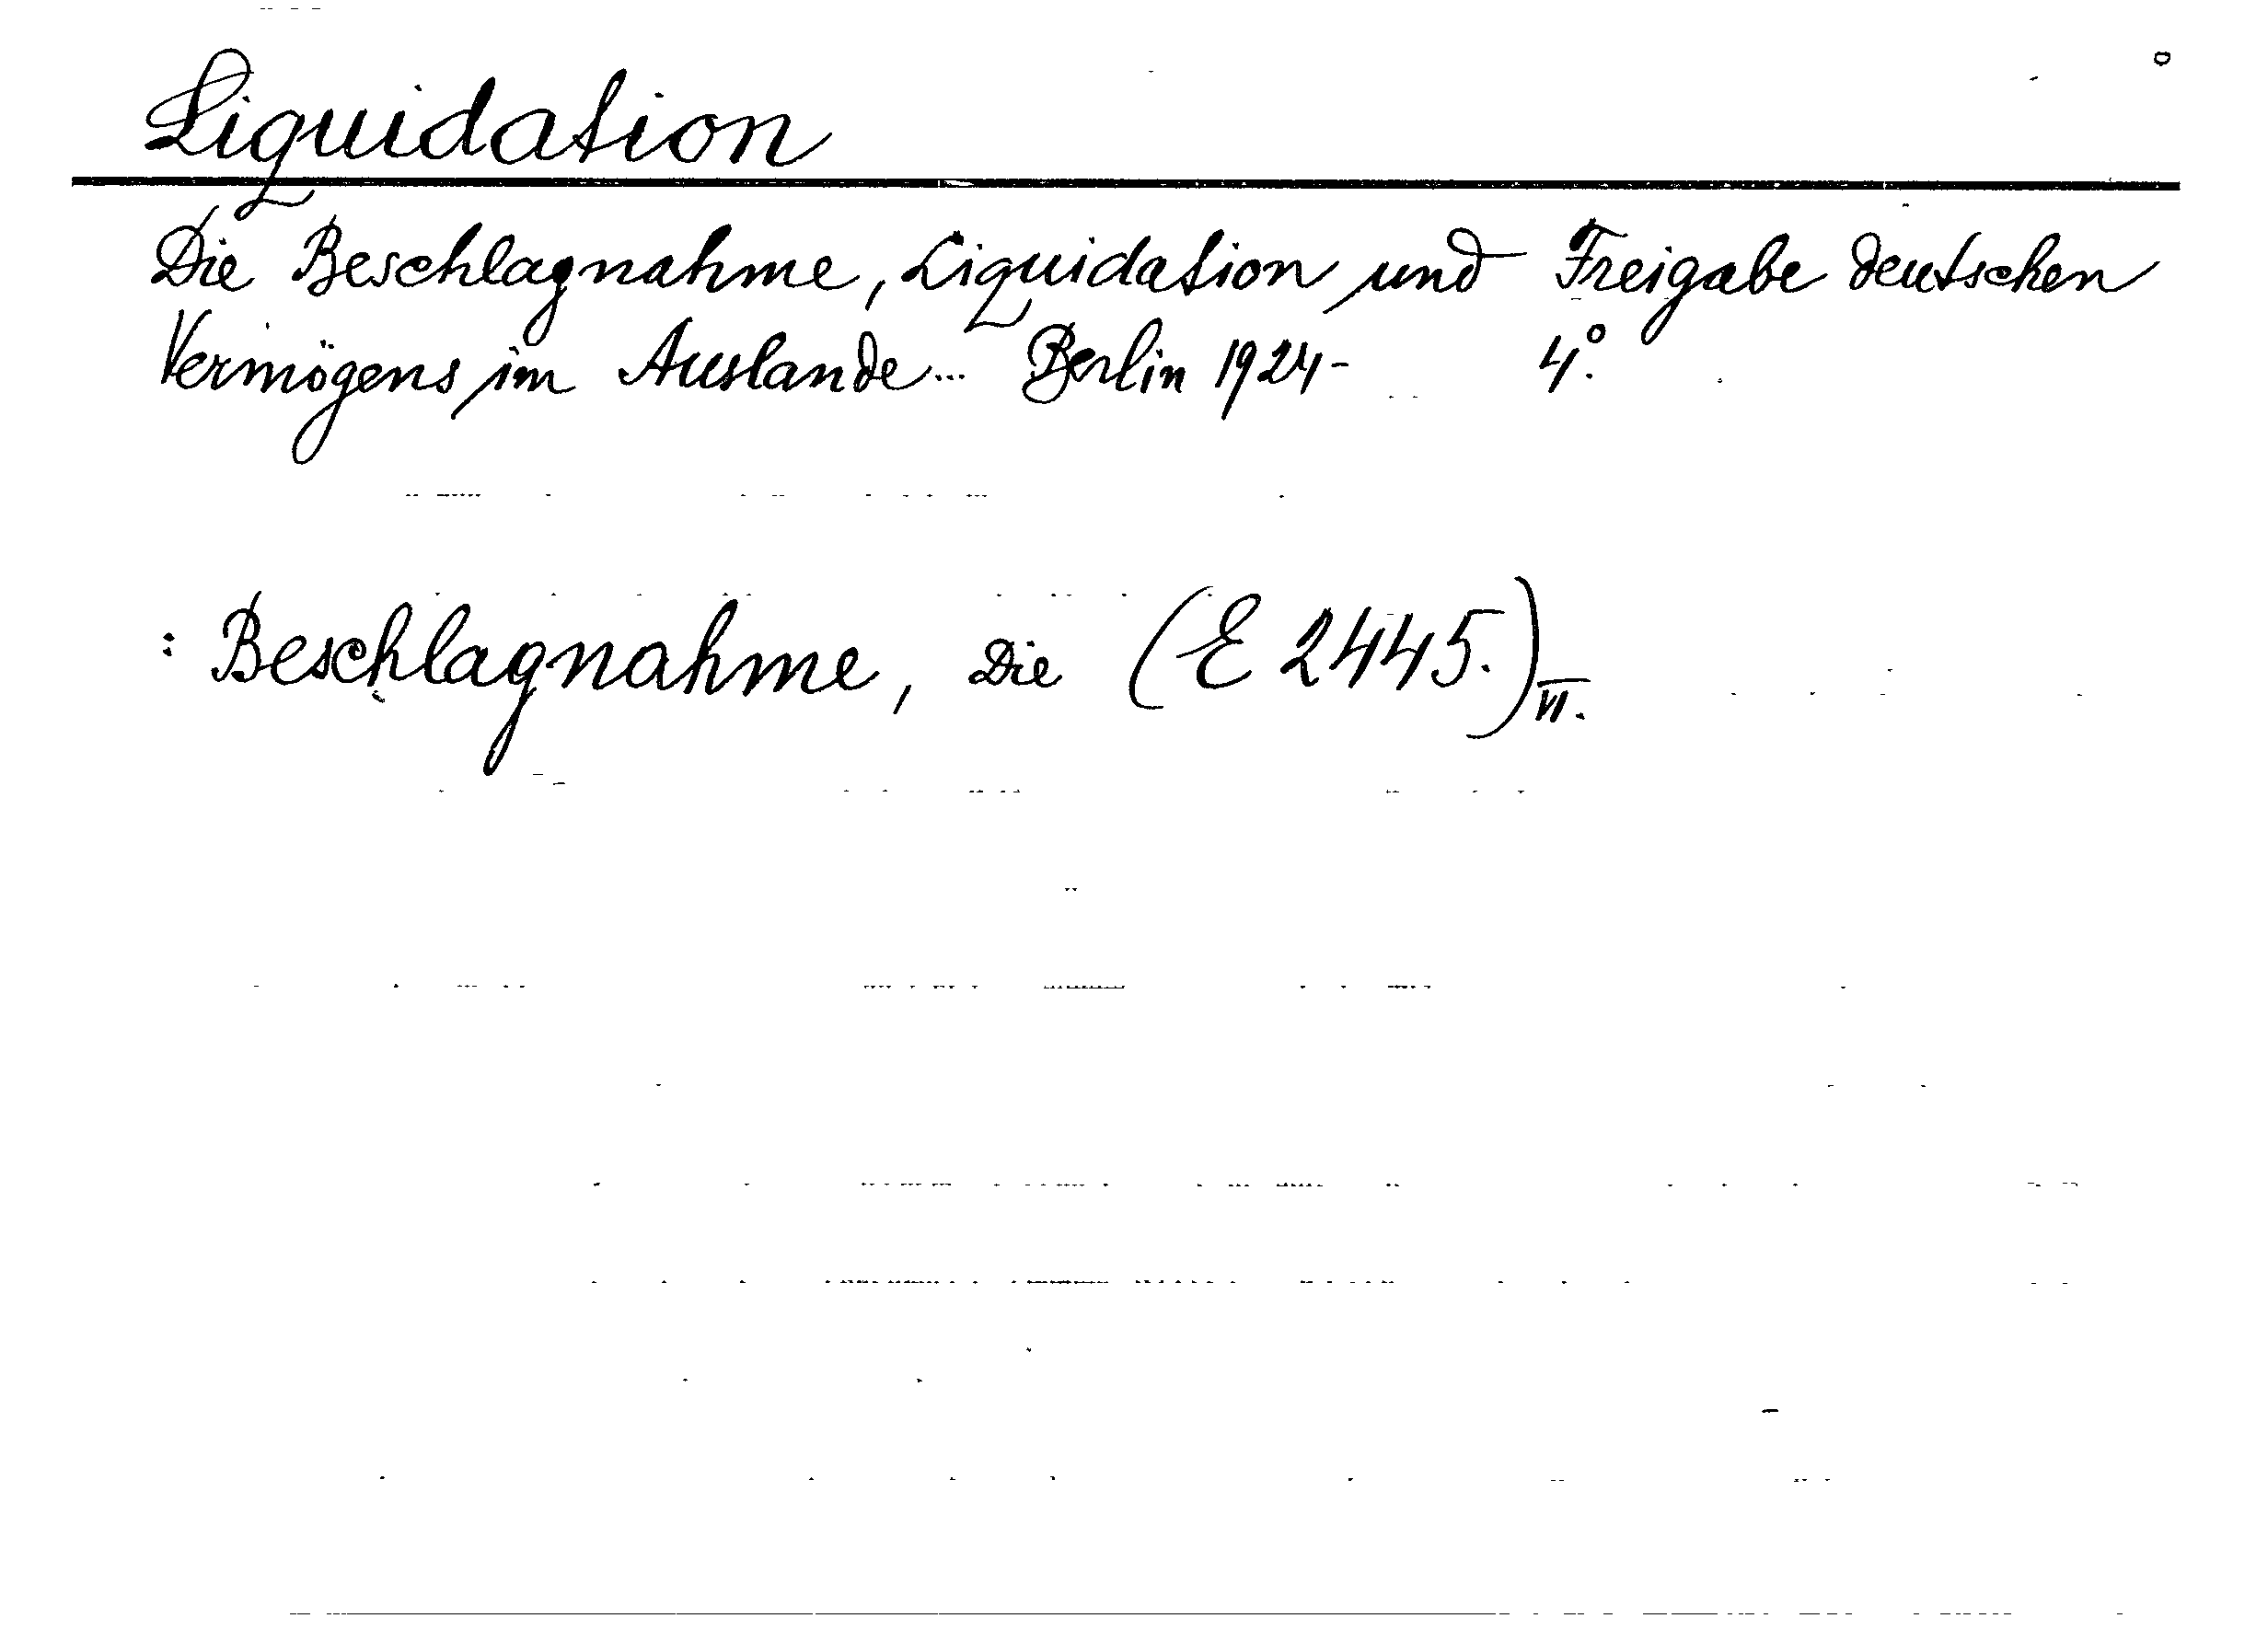 Liquidation
Die Beschlagnahme, Liquidation und Freigabe deutschen
Vermögens im Auslande... Berlin 1924- 4°.
: Beschlagnahme, Die (E 2445.) VI.